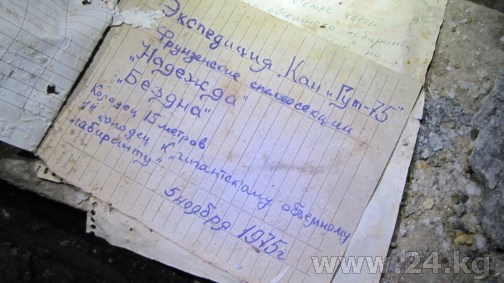 Экспедиция „Кан и Гут-75"
Фрунзенские спелеосекции
„Надежда"
„Бездна"
Колодец 15 метров
колодец к „гигантскому объемному
лабиринту"
5 ноября 1975г
www.24.kg